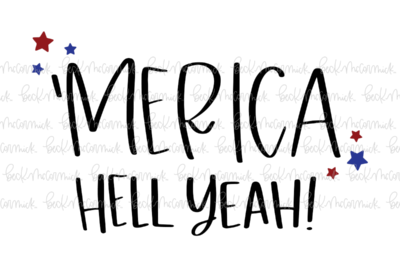 'MERICA
HELL YEAH!